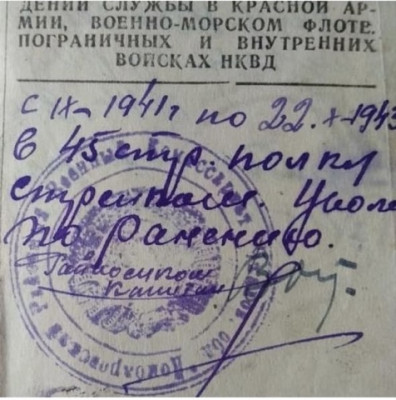 ДЕНИИ СЛУЖБЫ В КРАСНОЙ АР-
МИИ, ВОЕННО-МОРСКОМ ФЛОТЕ,
ПОГРАНИЧНЫХ И ВНУТРЕННИХ
ВОЙСКАХ НКВД
С IX-1941г по 22.X-1943
в 45 стр. полку
стрелком. Увол
по ранению.
Райвоенком
Капитан